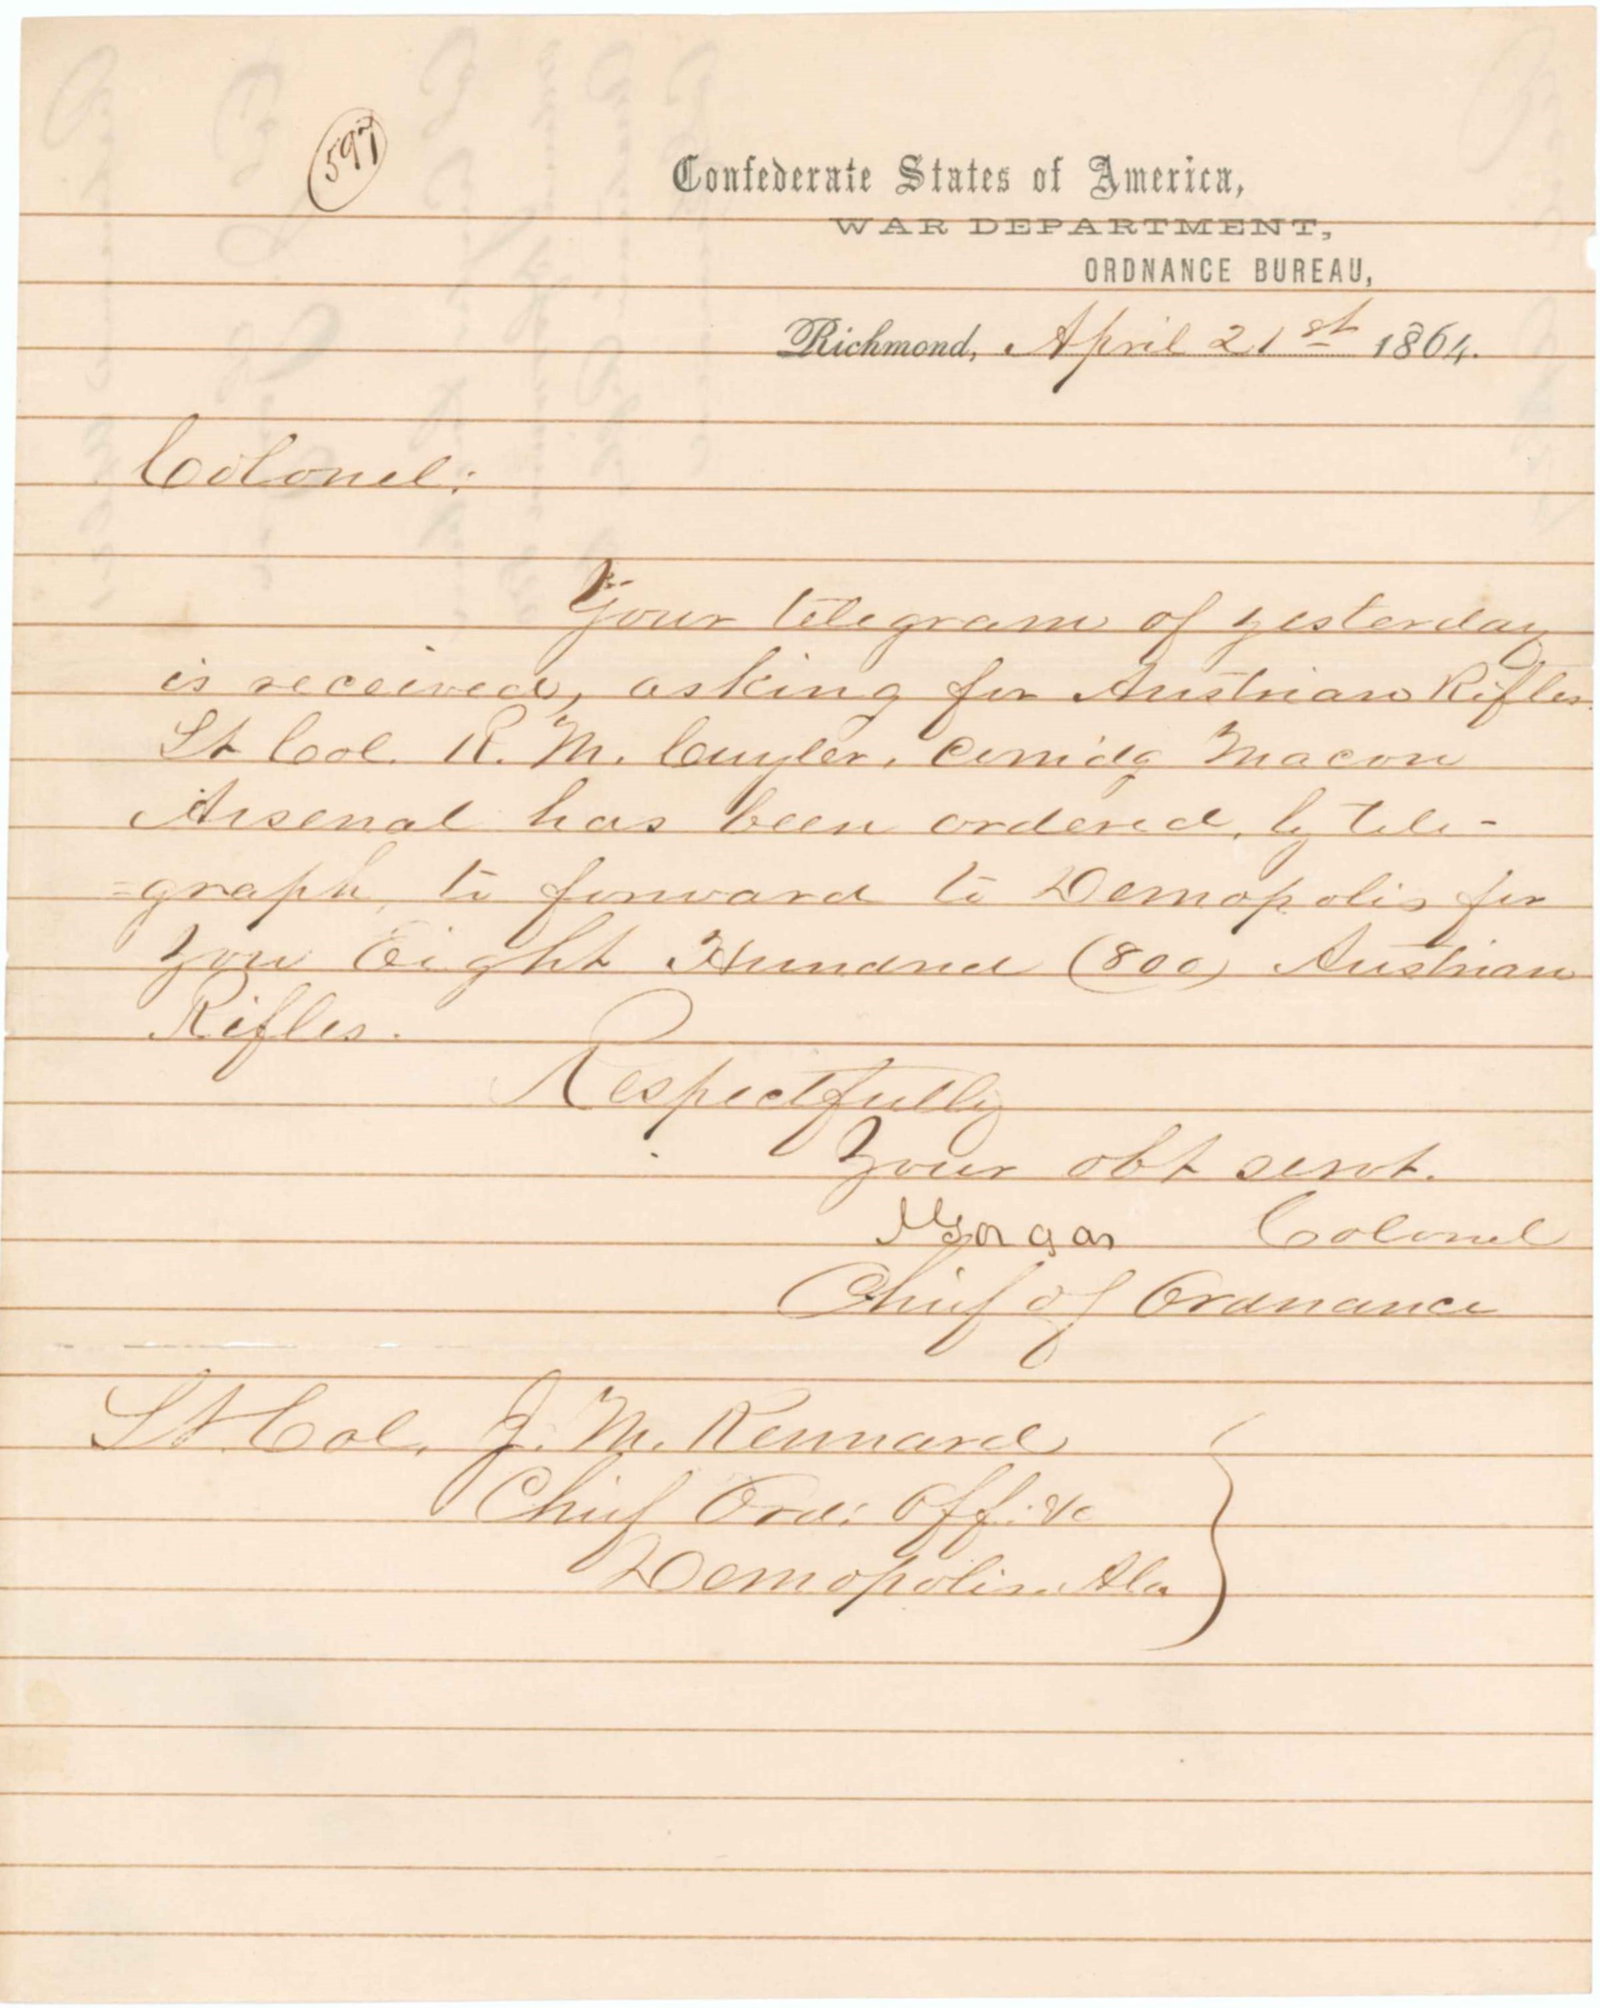 597
Confederate States of America,
WAR DEPARTMENT,
ORDNANCE BUREAU,
Richmond, April 21st 1864.
Colonel:
Your telegram of yesterday
is received, asking for Austrian Rifles.
Lt Col. R. M. Cuyler, Comdg Macon
Arsenal has been ordered, by tele-
=graph, to forward to Demopolis for
you Eight Hundred (800) Austrian
Rifles.
Respectfully
Your obt servt.
Gorgas Colonel
Chief of Ordnance
Lt. Col. J. M. Kennard
Chief Ord: Off: &c
Demopolis. Ala